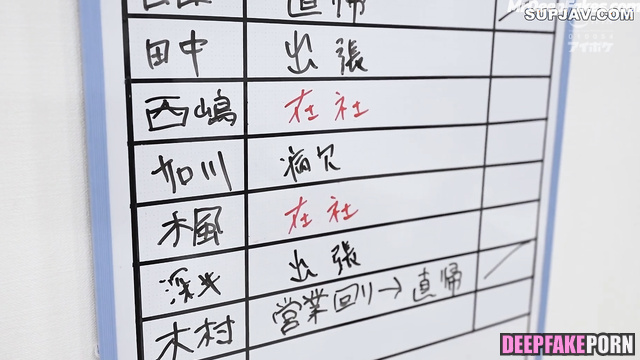 SUPJAV.COM
アイポケ
直帰
田中 出張
西嶋 在社
加川 病欠
楓 在社
出張
木村 営業回り→直帰
DEEPFAKEPORN